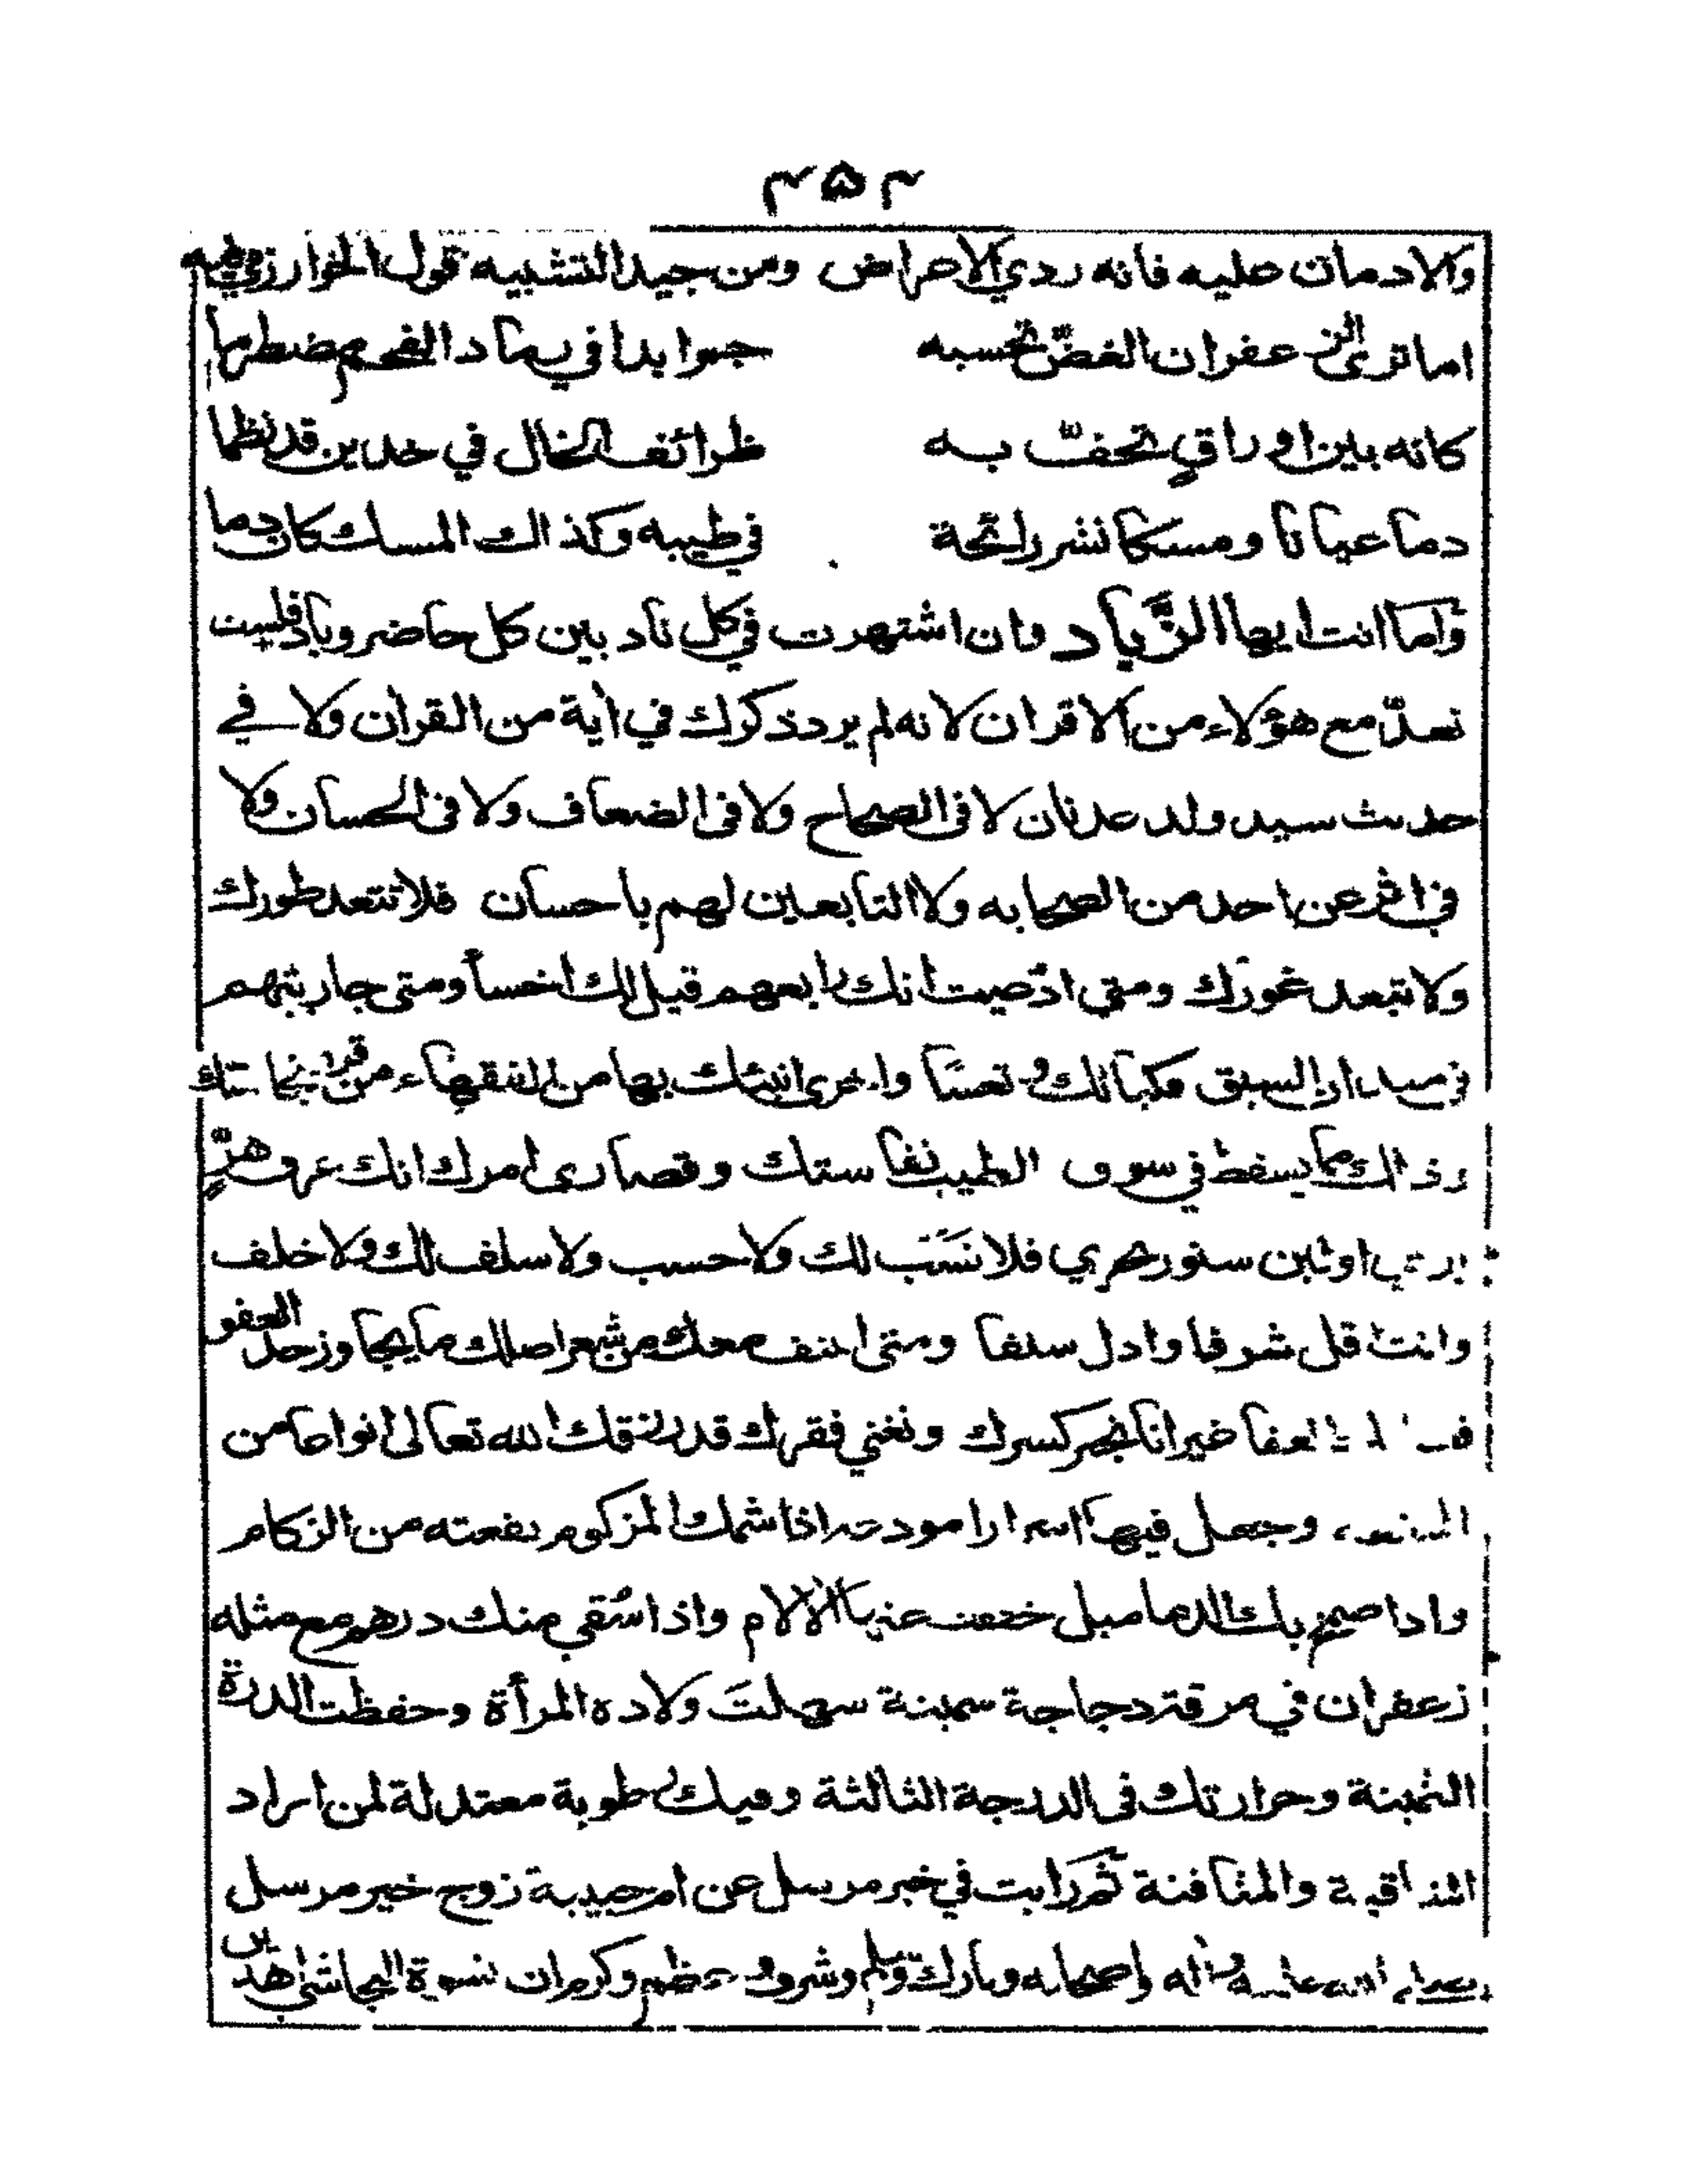 ٢٥٢
والادمان عليه فانه ردي الاعراض ومن جيد التشبيه قول الخوارزمي فيه
اما ترى الزعفران الغضّ تحسبه جمرا بدا في رماد الفحم مضطرما
كانه بين اوراقٍ تحفّ به طرائف الخال في خدين قد نظما
دما عيانا ومسكا نشر رائحة في طيبه وكذاك المسك كان دما
وَاما انت ايها الزَّباد وان اشتهرت في كل ناد بين كل حاضر وباد فلست
تعدّ مع هؤلاء من الاقران لانه لم يرد ذكرك في أية من القرأن ولا في
حديث سيد ولد عدنان لا في الصحاح ولا في الضعاف ولا في الحسان ولا
في اثر عن احد من الصحابه ولا التابعين لهم باحسان فلا تتعد طورك
ولا تبعد غورك ومتى ادّعيت انك رابعهم قيل لك اخسأ ومتى جاريتهم
في ميدان السبق فكبا لك وتعسًا واخرى انبئك بها من الفقهاء من قرر نجاستك
وذلك مما يسقط في سوق الطيب نفاستك وقصارى امرك انك عرق هرٍّ
بري اولبن سنور بحري فلا نَسَبَ لك ولا حسب ولا سلف لك ولا خلف
وانت اقل شرفا واذل سلفا ومتى معك من شعر اصلك ما يجاوز حد العفو
على العفا غير انا نجبر كسرك ونغني فقرك قد رزقك الله تعالى انواعا من
وجعل فيها اسرارا مودعه اذا شمك المزكوم نفعته من الزكام
واذا ضمخ بك الدماميل خففت عنها الألام واذا سُقي منك درهم مع مثله
زعفران في مرقة دجاجة سمينة سهلتَ ولاده المرأة وحفظت الدرة
الثمينة وحرارتك في الدرجة الثالثة وفيك رطوبة معتدلة لمن اراد
والمثافنة ثم رايت في خبر مرسل عن ام حبيبة زوج خير مرسل
صلى الله عليه وأله واصحابه وبارك وسلم وشرف وعظم وكرم ان نسوة النجاشي اهدين